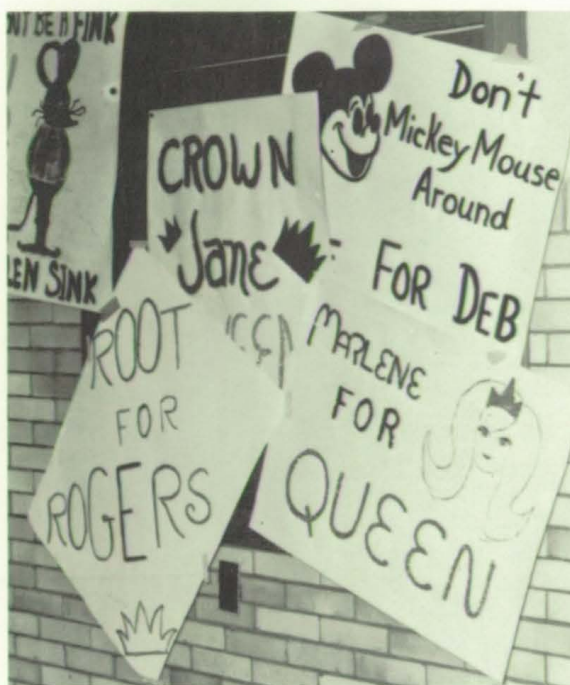 NT BE A FINK
LEN SINK
CROWN
Jane
Don't
Mickey Mouse
Around
FOR DEB
ROOT
FOR
ROGERS
MARLENE
FOR
QUEEN